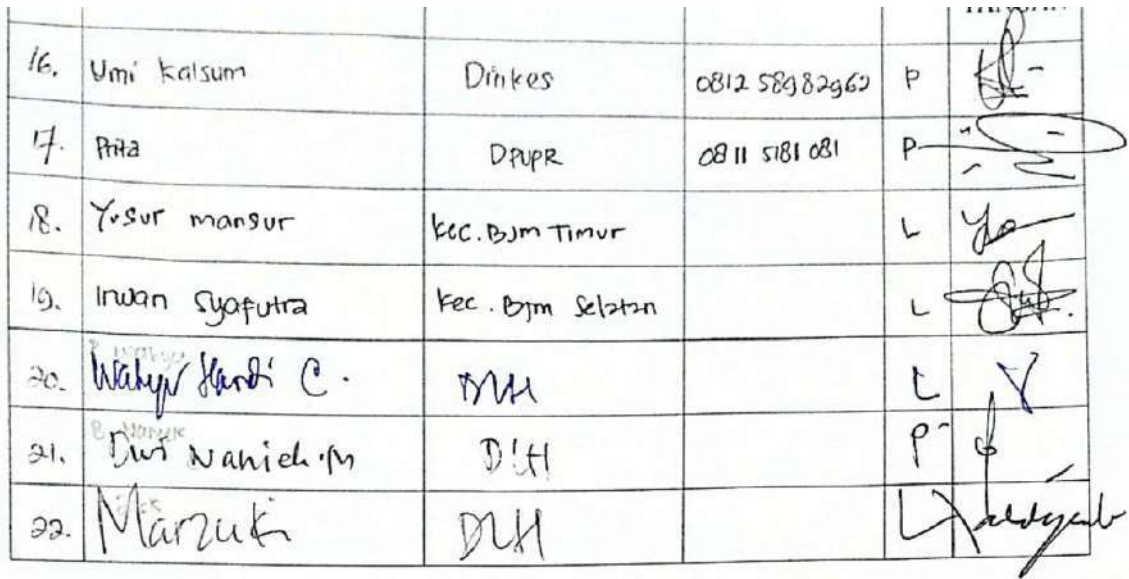 TANGAN
16. Umi Kalsum Dinkes 0812 58982962 P
17. Prita DPUPR 0811 5181 081 P
18. Yusur mansur Kec. Bjm Timur L
19. Irwan Syaputra Kec. Bjm Selatan L
20. Wahyu Hardi C. DLH L
21. Dwi Naniek .M DLH P
22. Marzuki DLH L